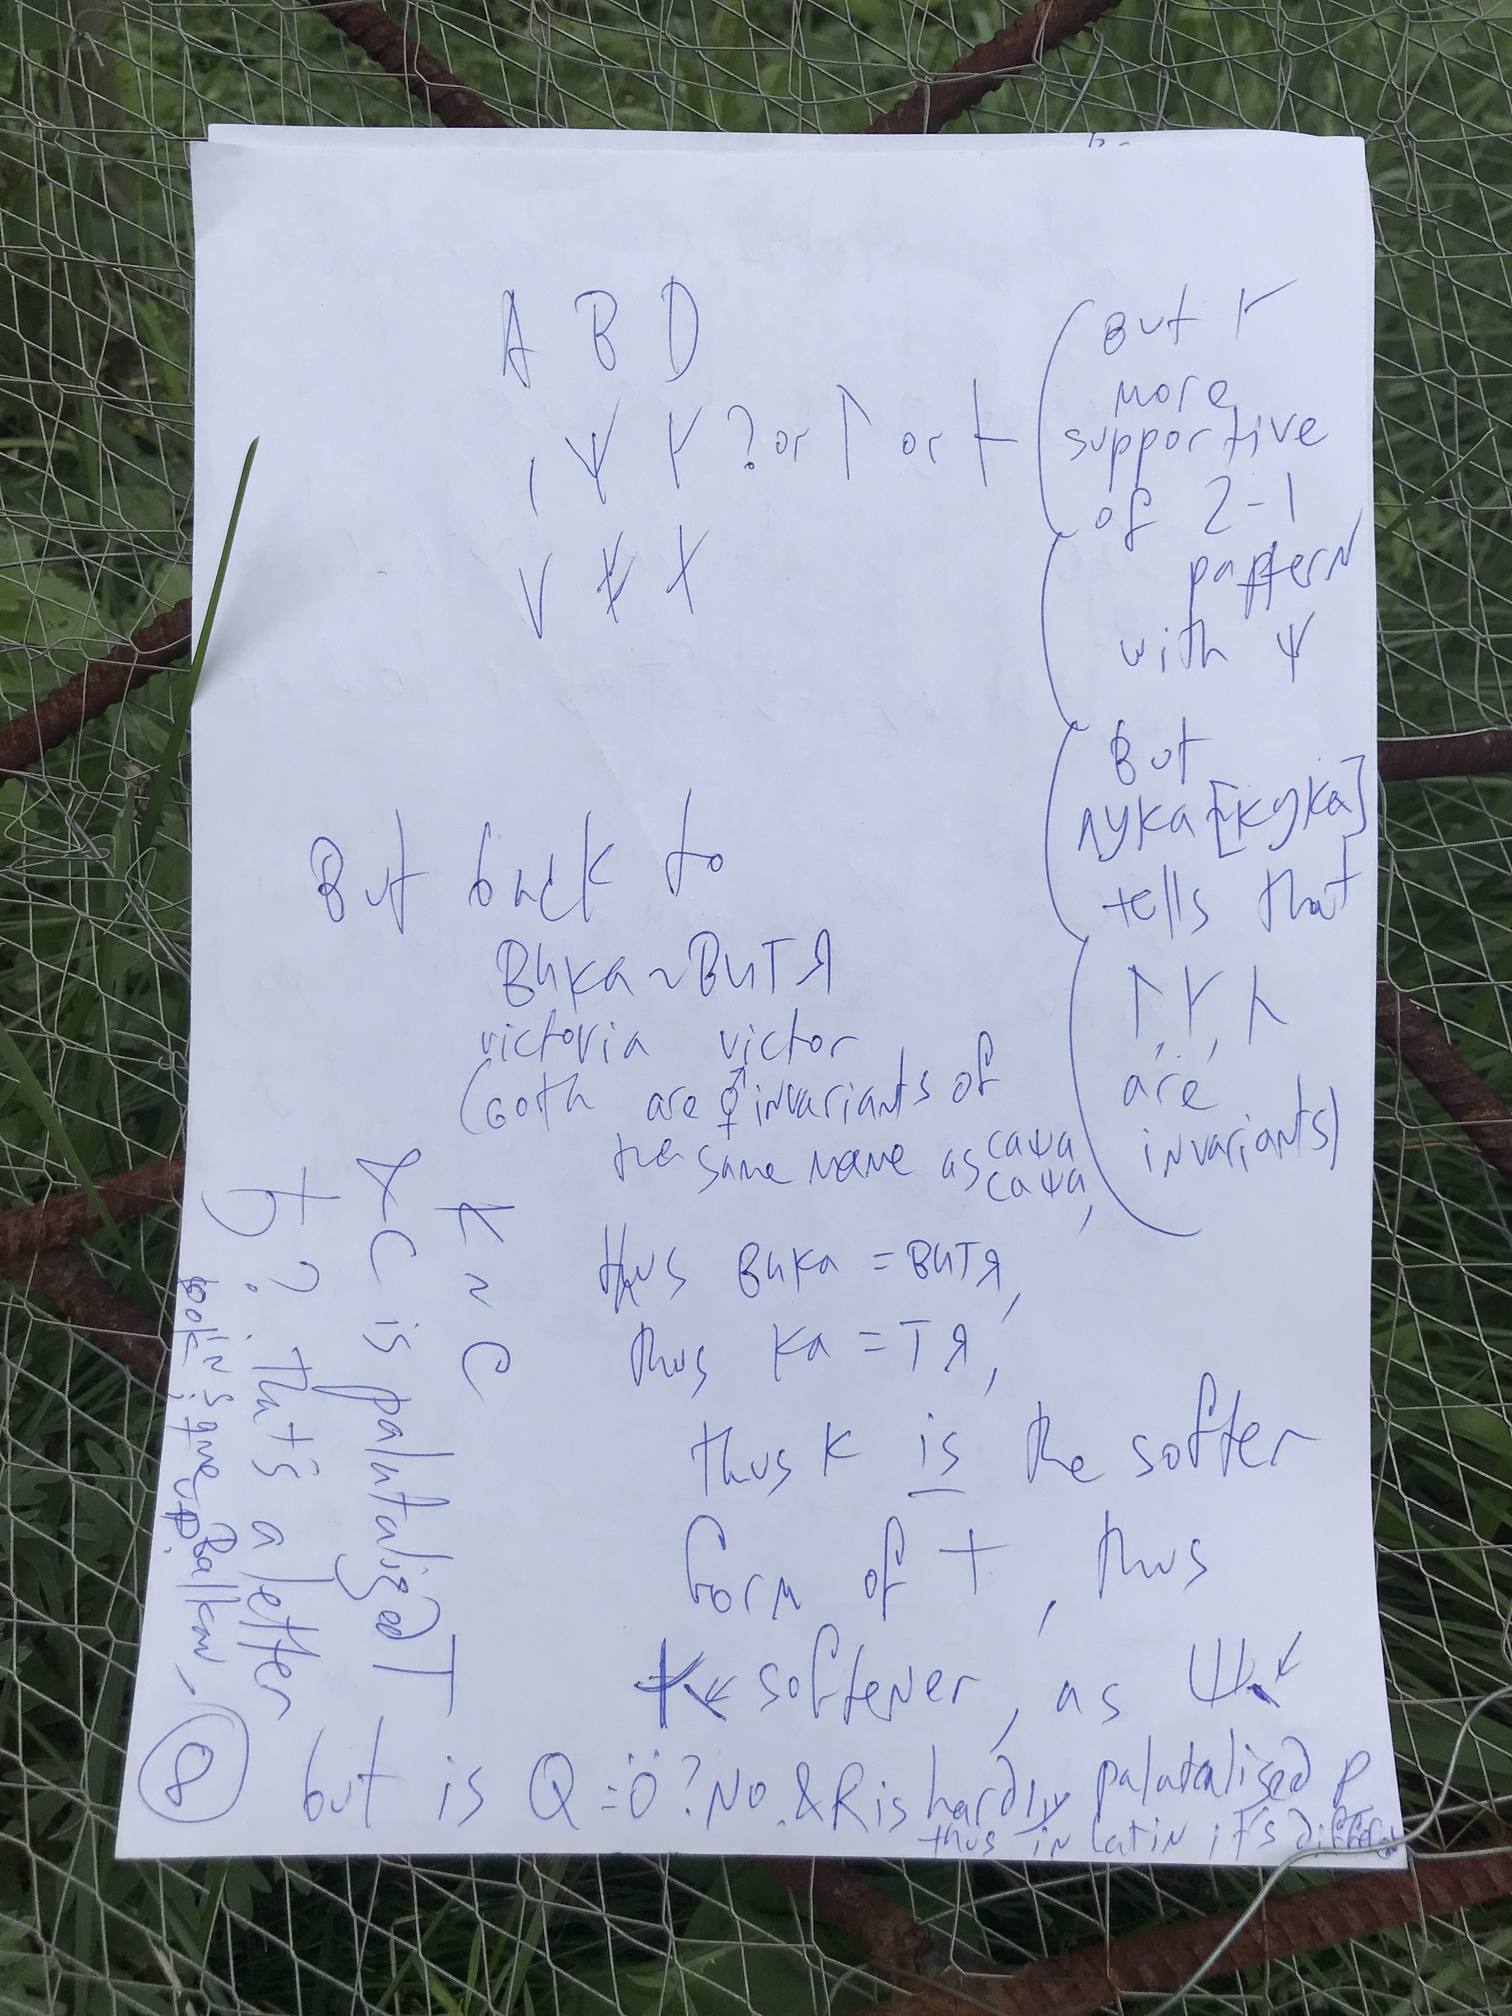 A B D
, Ψ Y ? or ↾ or ⊢
V X
(But ↾
more
supportive
of 2-1
pattern
with Ψ
(But
лука [кука]
tells that
↾, Y, λ
are
invariants)
But back to
Вика ~ ВИТЯ
victoria victor
(both are ⚥ invariants of
the same name as саша
саша,
thus вика = витя,
thus ка = Тя,
thus K is the softer
form of +, thus
K← softener, as Щ↙
K ~ C
& C is palatalized T
ђ? that's a letter
but is Q = Ö? No. & R is hardly palatalised P
thus in latin it's different
8